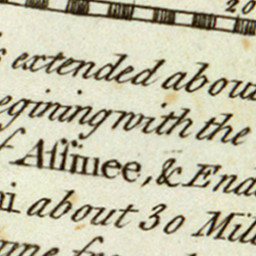 20
extended about
egining with the
f Aſſinee, & End
ni about 30 Mill